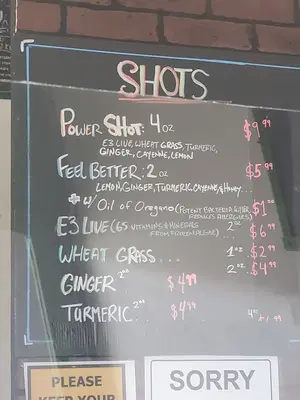 SHOTS
POWER SHOT: 4 OZ $9.99
E3 LIVE, WHEAT GRASS, TURMERIC,
GINGER, CAYENNE, LEMON
FEEL BETTER: 2 OZ $5.99
LEMON, GINGER, TURMERIC, CAYENNE, & HONEY...
w/ Oil of Oregano (POTENT BACTERIA KILLER, $1.00
REDUCES ALLERGIES)
E3 LIVE (65 VITAMINS & MINERALS 2oz $6.99
FROM FROZEN ALGAE)
WHEAT GRASS... 1oz $2.99
2oz $4.99
GINGER 2oz $4.99
TURMERIC 2oz $4.99
PLEASE
KEEP YOUR
SORRY